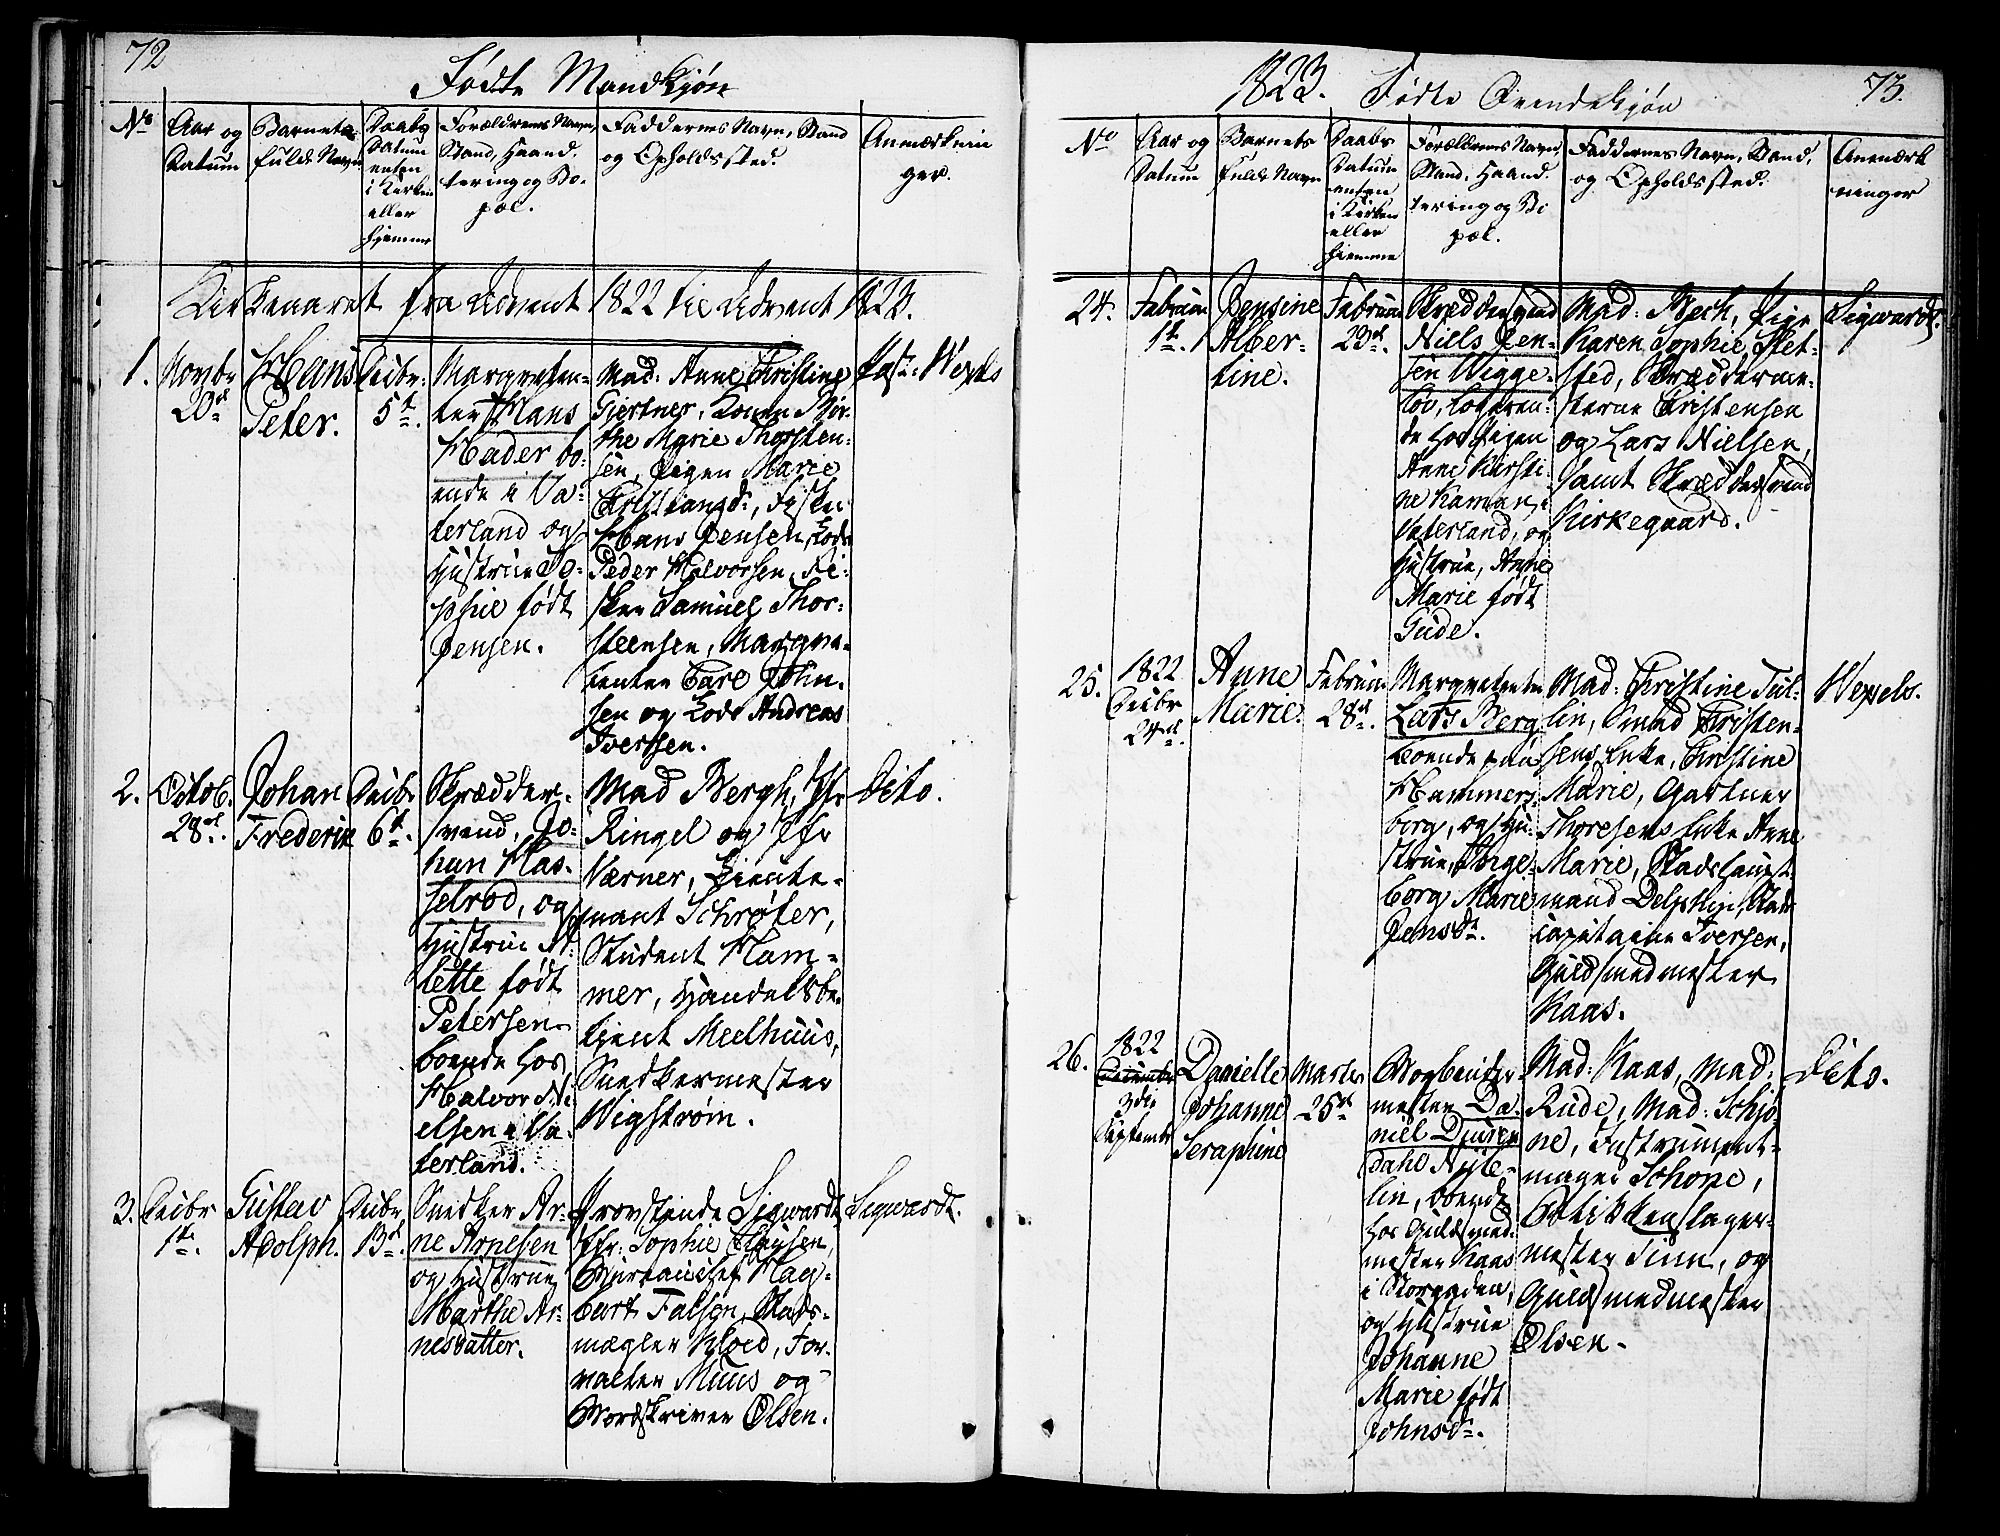 72
Fødte Mandkjøn
No
Aar og
Datum
Barnets
fulde Navn
Daabs
Datum
enten
i Kirken
eller
hjemme
Forældrenes Navn,
Stand, Haand-
tering og Bo-
pæl.
Faddernes Navn, Stand
og Opholdssted.
Anmærknin
ger.
Kirkeaaret fra Advent 1822 til Advent 1823.
1.
Novbr
20d
Hans
Peter.
Decbr:
5t.
Margreten-
ter Hans
Hader bo-
ende i Va-
terland og
Hustrue So-
phie født
Jensen.
Mad: Anne Christine
Giertner, Konen Mor-
the Marie Thorsten-
sen, Pigen Marie
Christiansd:, Fisker
Hans Jensen, Lods
Peder Halvorsen, Fi-
sker Samuel Thor-
steensen, Margre-
tenter Carl John-
sen og Lods Andreas
Iversen.
Past: Wexels
2.
Octob.
28d.
Johan
Frederik
Decbr
6t.
Skrædder-
svend, Jo-
han Has-
selrod, og
Hustrue Ar-
lette født
Petersen
boende hos
Halvor Ni-
elsen i Va-
terland.
Mad Bergh, Jfr
Ringel og Jfr
Værner, Lieute-
nant Schrøter,
Student Ham-
mer, Handelsbe-
tjent Meelhuus,
Snedkermester
Wigstrøm.
Dito.
3.
Decbr
1te.
Gustav
Adolph.
Decbr
13d.
Snedker Ar-
ne Arnesen
og Hustrue
Marthe Ar-
nesdatter.
Provstinde Sigwardt
Jfr: Sophie Clausen,
Bureauchef Hag-
bart Falsen, Stads-
mægler Kloed, For-
valter Muus og
Bordskriver Olsen.
Sigwardt.
1823.
Fødte Qvindekjøn
73.
No
Aar og
Datum
Barnets
fulde Navn
Daabs
Datum
enten
i Kirken
eller
hjemme
Forældrenes Navn,
Stand, Haand-
tering og Bo
pæl.
Faddernes Navn, Stand,
og Opholdssted.
Anmærk
ninger
24.
Februar
1t.
Jensine
Alber-
tine.
Februar
23d.
Skræddersvend
Niels Jen-
sen Wigge-
lov, logeren-
de hos Pigen
Anne Kirsti-
ne Haman i
Vaterland, og
Hustrue, Anne
Marie født
Gude.
Mad: Bech, Pige
Karen Sophie Plet-
sted, Skrædderme-
sterne Christensen
og Lars Nielsen,
samt Skræddersvend
Kirkegaard.
Sigwardt.
25.
1822
Decbr
24d.
Anne
Marie.
Februar
28d.
Margretenter
Lars Berg
boende paa
Hammers-
borg, og Hu-
strue, Inge-
borg Marie
Jensd.
Mad: Christine Tul-
lin, Smed Christen-
sens Enke, Christine
Marie, Gartner
Thoresens Enke Anne
Marie, Stadshaupt-
mand Delphin, Stads
capitaine Iversen,
Guldsmedmester
Kaas.
Wexels.
26.
1822
December
3die
September
Danielle
Johanne
Seraphine
Marts
25d
Bogbinder
mester Da-
niel Djuren-
dahl Nyste-
lin, boende
hos Guldsmed-
mester Kaas
i Storgaden,
og Hustrue
Johanne
Marie født
Johnsd.
Mad: Kaas, Mad:
Rude, Mad: Schjo-
ne, Instrument-
mager Schone,
Blikkenslager-
mester Sinn, og
Guldsmedmester
Olsen.
Dito.